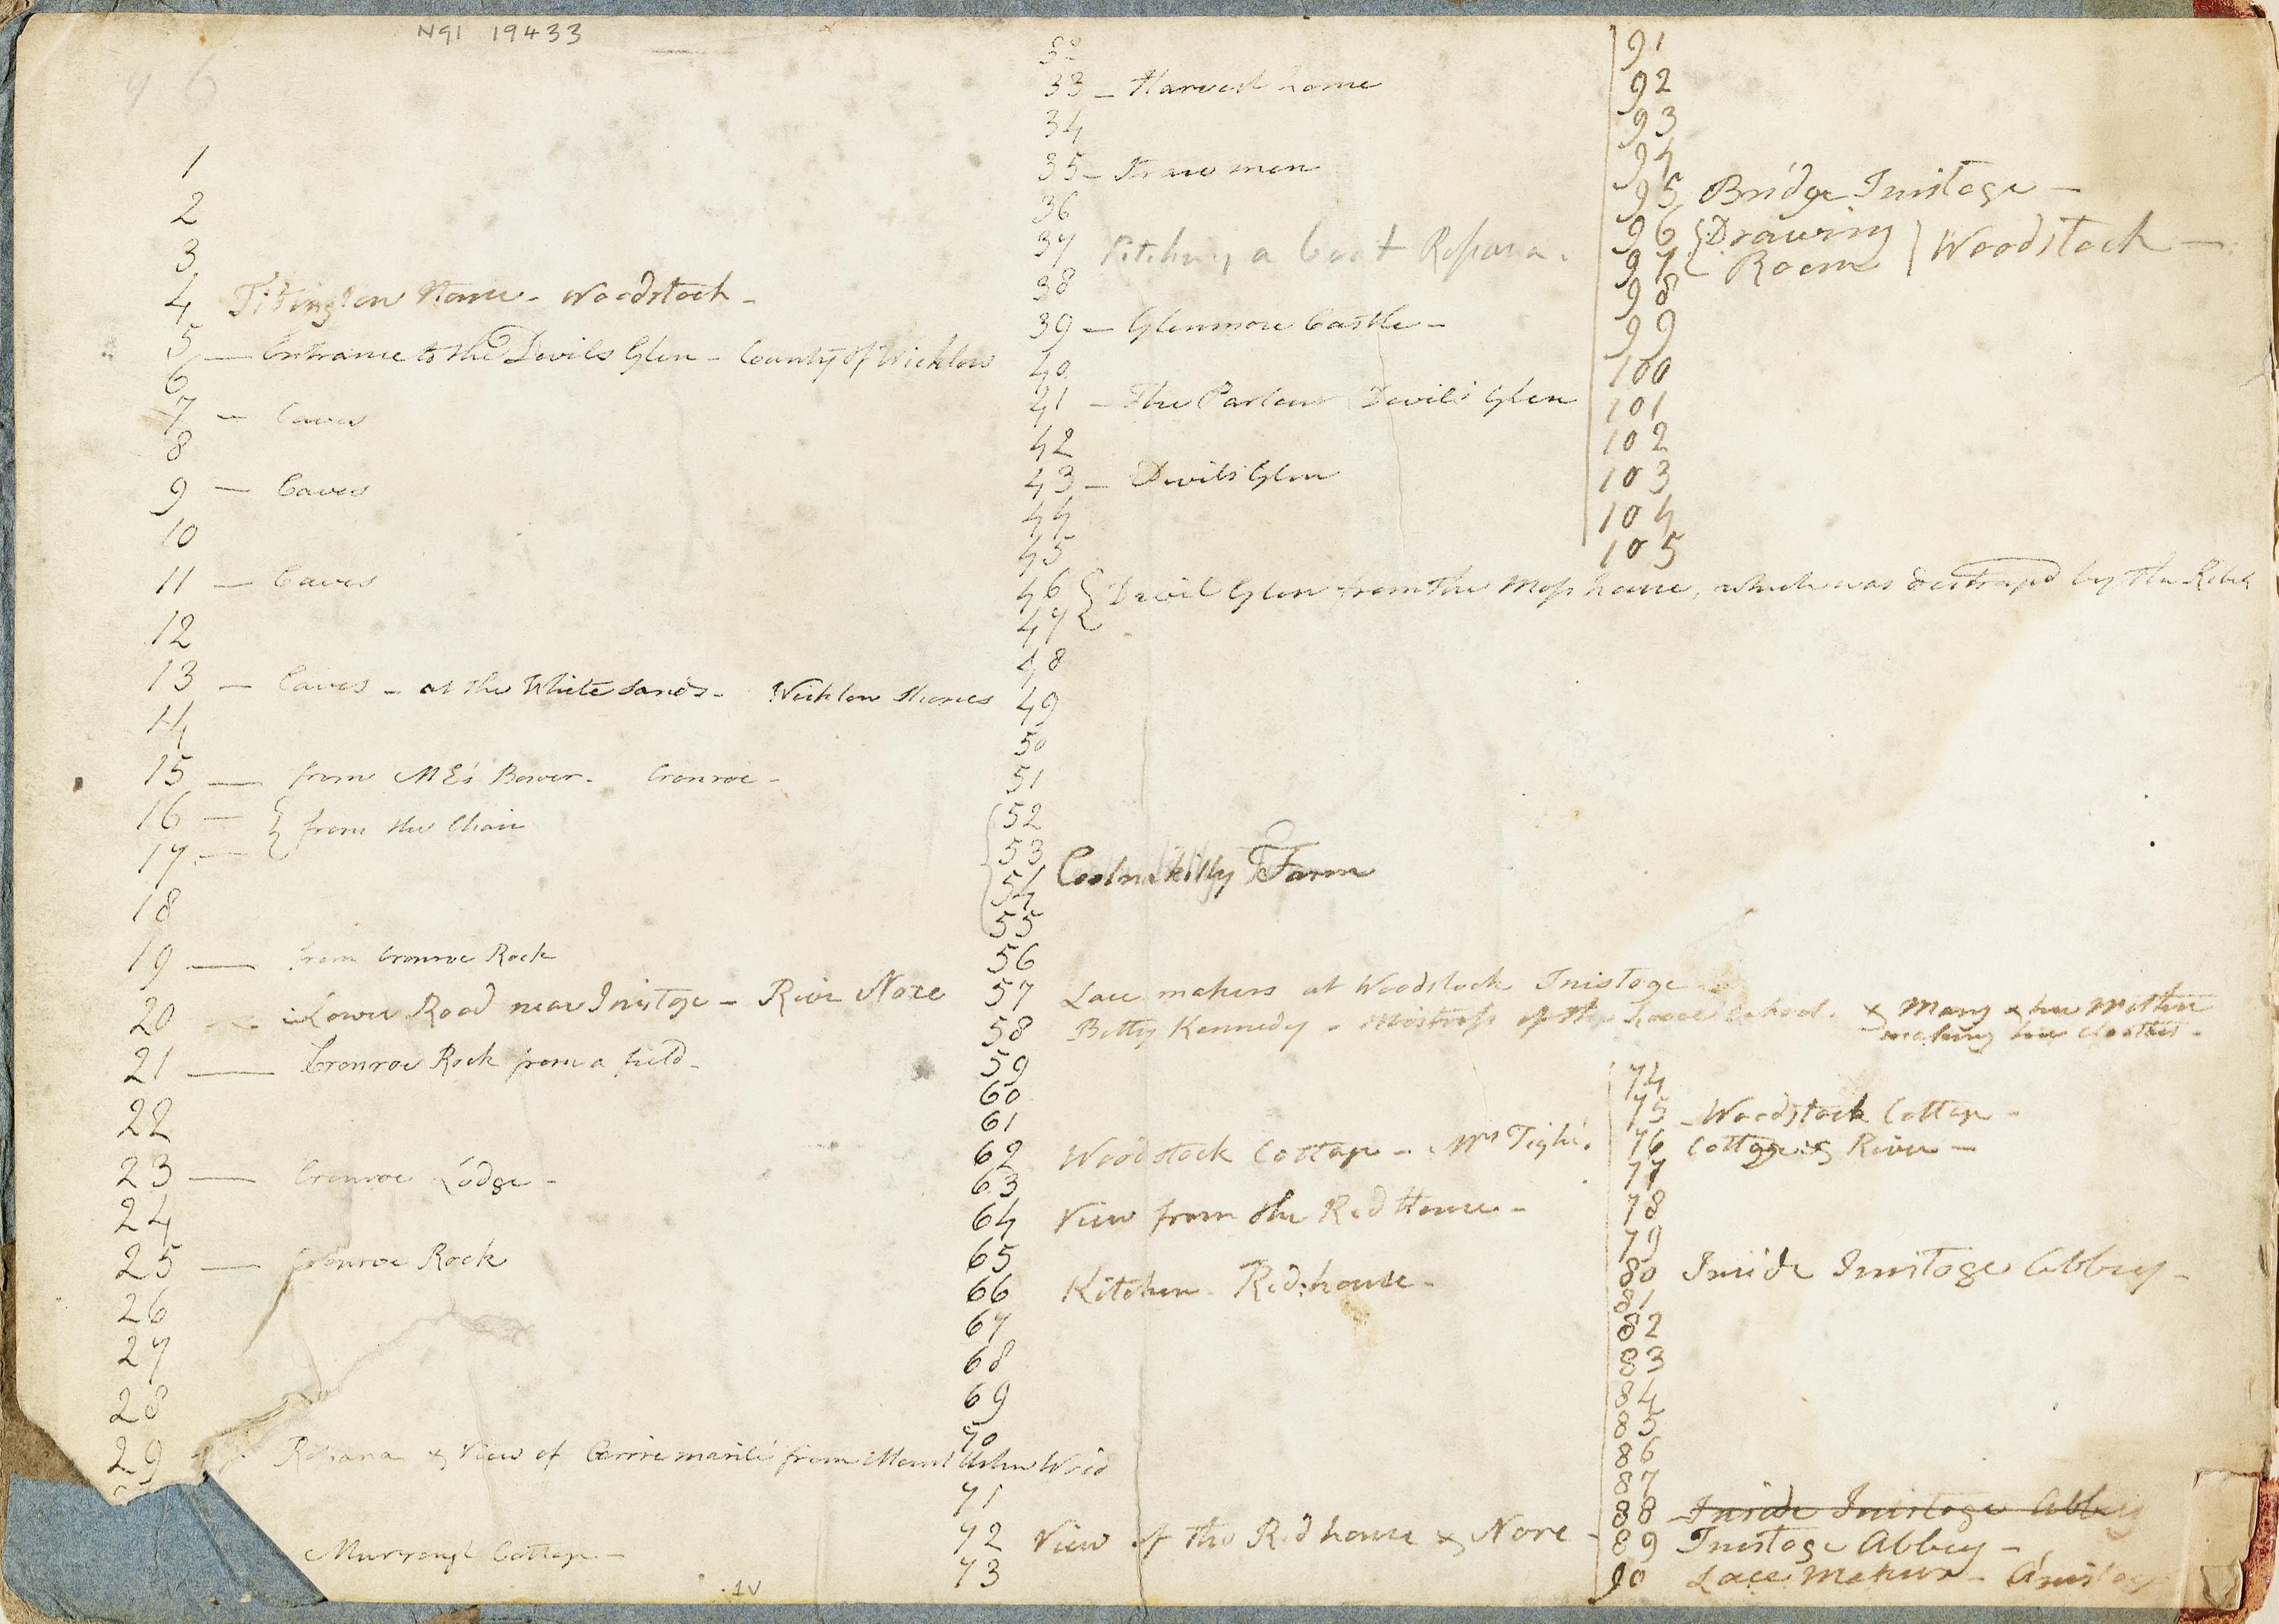 NGI 19433
1
2
3
4 Tithington House - Woodstock -
5 — Entrance to the Devils Glen - County of Wicklow
6
7 — Caves
8
9 — Caves
10
11 — Caves
12
13 — Caves - at the White Sands - Wicklow Shores
14
15 — from ME's Bower - Cronroe -
16 — } from the Chair
17 —
18
19 — from Cronroe Rock
20 — Lower Road near Inistoge - River Nore
21 — Cronroe Rock from a field -
22
23 — Cronroe Lodge -
24
25 — Cronroe Rock
26
27
28
29 Rosana & View of from Mount Usher Wood
Murrough Cottage -
32
33 - Harvest home
34
35 - Straw men
36
37 Pitching a boat Rosana.
38
39 - Glenmore Castle -
40
41 - The Parlour Devils Glen
42
43 - Devils Glen
44
45
46 { Devil Glen from the Moss house, which was destroyed by the Rebels
47
48
49
50
51
52
53
54 Coolnakilly Farm
55
56
57 Lace makers at Woodstock Inistoge
58 Betty Kennedy - Mistress of the Lace School. & Mary & her Mother
making her cloathes -
59
60
61
62 Woodstock Cottage - Mrs Tighe.
63
64 View from the Red House -
65
66 Kitchen Red: house -
67
68
69
70
71
72 View of the Red house & Nore -
73
74
75 - Woodstock Cottage -
76 Cottage & River -
77
78
79
80 Inside Inistoge Abbey -
81
82
83
84
85
86
87
88 Inside Inistoge Abbey
89 Inistoge Abbey -
90 Lace Makers - Inistoge
91
92
93
94
95 Bridge Inistoge -
96 { Drawing } Woodstock -
97 Room
98
99
100
101
102
103
104
105
1v